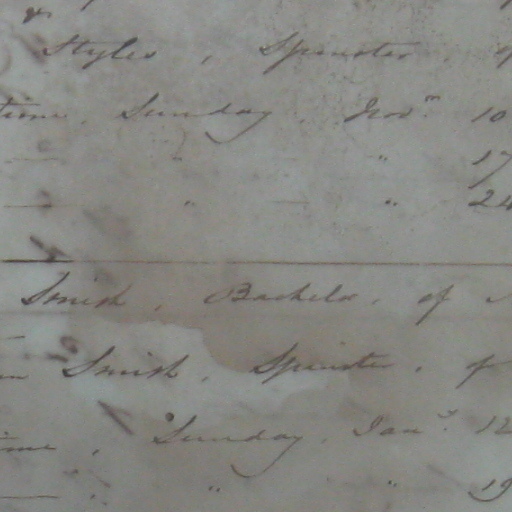 Styles, Spinster, of
time, Sunday, Novr 10
— " " 17
— " — " 24
Smith, Bachelor, of
Smith, Spinster, of
time, Sunday, Jany 12
— " " 19